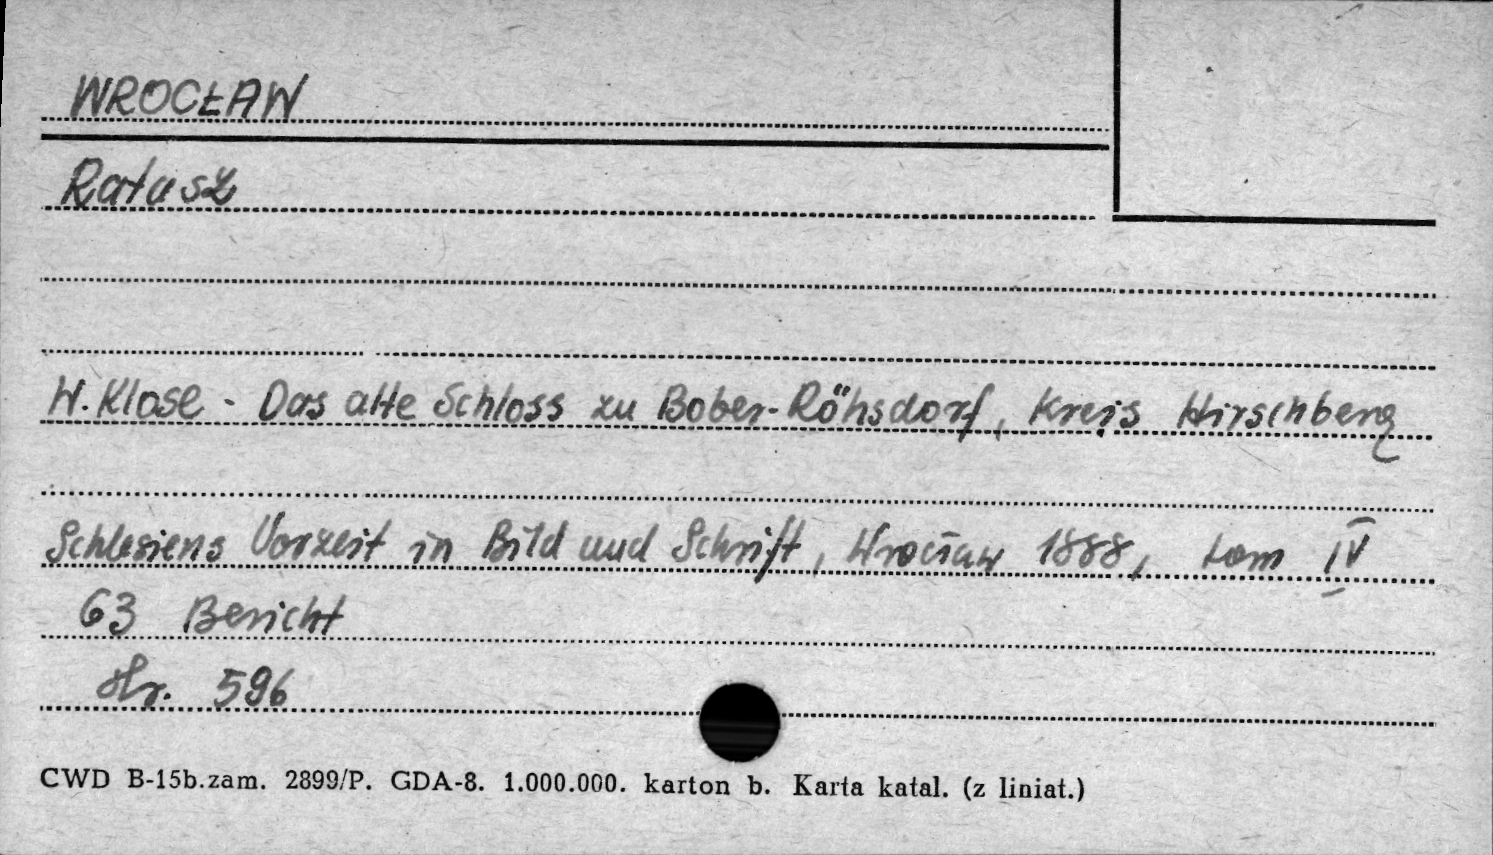 WROCŁAW
Ratusz
W. Klose - Das alte Schloss zu Bober-Röhsdorf, Kreis Hirschberg
Schlesiens Vorzeit in Bild und Schrift, Wrocław 1888, tom IV
63 Bericht
str. 596
CWD B-15b.zam. 2899/P. GDA-8. 1.000.000. karton b. Karta katal. (z liniat.)